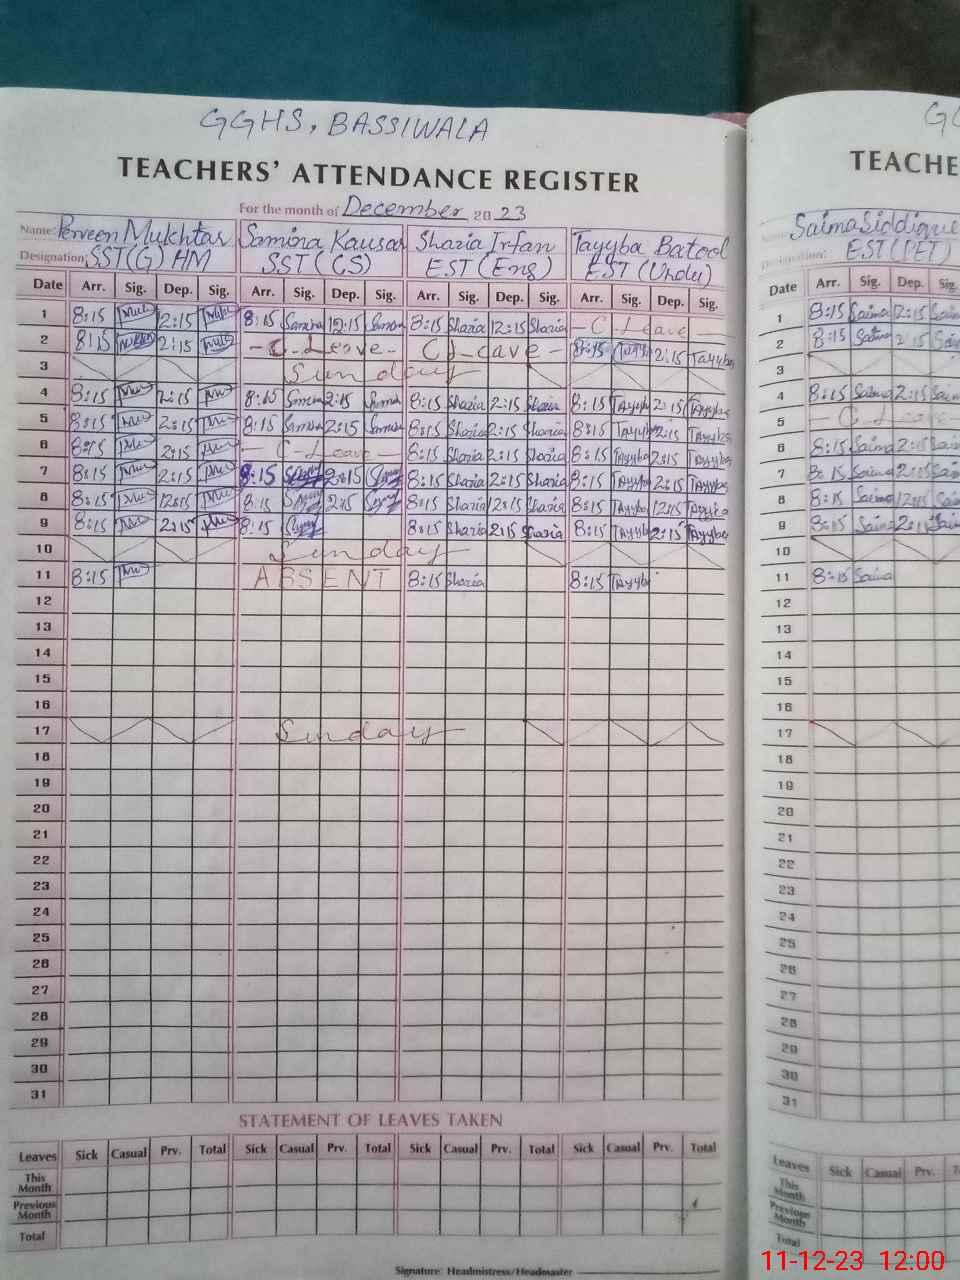 GGHS, BASSIWALA
TEACHERS' ATTENDANCE REGISTER
TEACHE
For the month of December 2023
Name: Perveen Mukhtar Samina Kausar Shazia Irfan Tayyba Batool Saima Siddique
Designation: SST(G) HM SST (CS) EST (Eng) EST (Urdu) EST (PET)
Date Arr. Sig. Dep. Sig. Arr. Sig. Dep. Sig. Arr. Sig. Dep. Sig. Arr. Sig. Dep. Sig. Date Arr. Sig. Dep. Sig.
1 8:15 12:15 8:15 Samina 12:15 Samina 8:15 Shazia 12:15 Shazia - C-Leave - 1 8:15 Saima 12:15 Saima
2 8:15 2:15 - C-Leave - C Leave - 8:15 Tayyba 2:15 Tayyba 2 8:15 Saima 2:15 Saima
3 Sunday 3
4 8:15 2:15 8:15 Samina 2:15 Samina 8:15 Shazia 2:15 Shazia 8:15 Tayyba 2:15 Tayyba 4 8:15 Saima 2:15 Saima
5 8:15 2:15 8:15 Samina 2:15 Samina 8:15 Shazia 2:15 Shazia 8:15 Tayyba 2:15 Tayyba 5 - C-Leave -
6 8:15 2:15 - C-Leave - 8:15 Shazia 2:15 Shazia 8:15 Tayyba 2:15 Tayyba 6 8:15 Saima 2:15 Saima
7 8:15 2:15 8:15 2:15 8:15 Shazia 2:15 Shazia 8:15 Tayyba 2:15 Tayyba 7 8:15 Saima 2:15 Saima
8 8:15 12:15 8:15 2:15 8:15 Shazia 12:15 Shazia 8:15 Tayyba 12:15 Tayyba 8 8:15 Saima 12:15 Saima
9 8:15 2:15 8:15 8:15 Shazia 2:15 Shazia 8:15 Tayyba 2:15 Tayyba 9 8:15 Saima 2:15 Saima
10 Sunday 10
11 8:15 ABSENT 8:15 Shazia 8:15 Tayyba 11 8:15 Saima
12 12
13 13
14 14
15 15
16 16
17 Sunday 17
18 18
19 19
20 20
21 21
22 22
23 23
24 24
25 25
26 26
27 27
28 28
29 29
30 30
31 31
STATEMENT OF LEAVES TAKEN
Leaves Sick Casual Prv. Total Sick Casual Prv. Total Sick Casual Prv. Total Sick Casual Prv. Total Leaves Sick Casual Prv.
This Month This Month
Previous Month Previous Month
Total Total
Signature: Headmistress/Headmaster
11-12-23 12:00